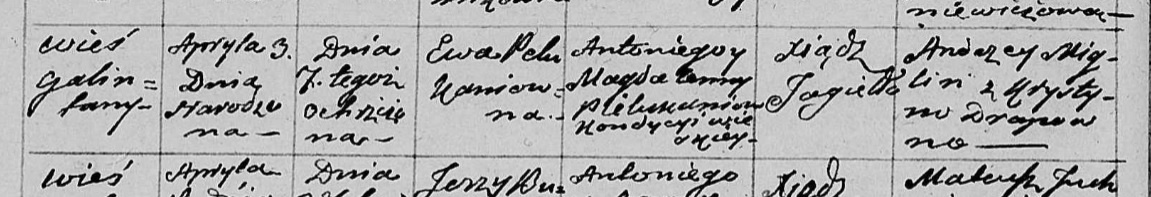 niewiczowa —
wieś
Galin=
tany-
Apryla 3.
Dnia
Narodzo
na —
Dnia
7. tegoż
ochrzczo
na —
Ewa Pelu
Kaniow=
na. —
Antoniego y
Magdalenny
Pielukaniow
Kondycyi wie
yskiey-
Xiądz
Jagiełło
Andrzey Mig-
lin z Krysty-
no Drapow
no —
wieś
Apryla
Dnia
Jerzy Bu=
Antoniego
Xiądz
Mateusz Juch